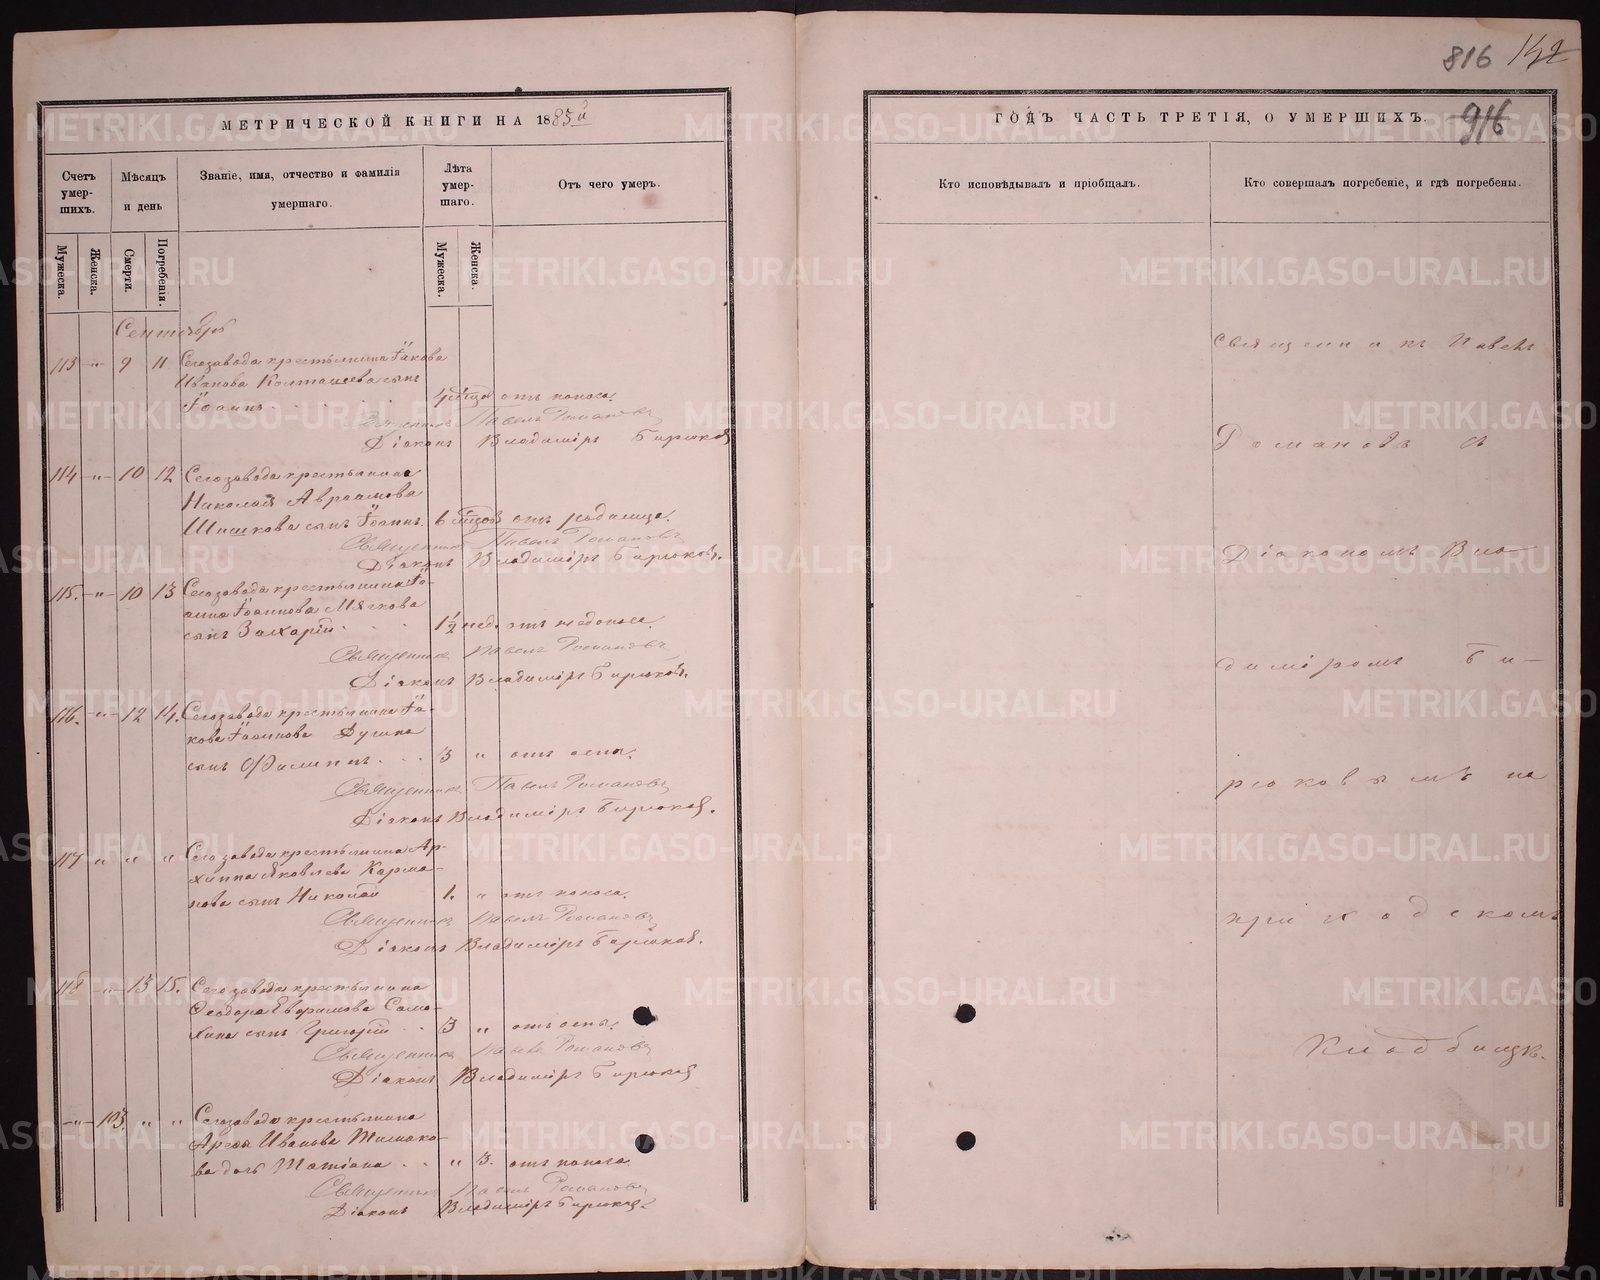 816 142
МЕТРИЧЕСКОЙ КНИГИ НА 1885 й
ГОДЪ ЧАСТЬ ТРЕТІЯ, О УМЕРШИХЪ.
916
Счетъ умер-шихъ.
Мѣсяцъ и день
Званіе, имя, отчество и фамилія умершаго.
Лѣта умер-шаго.
Отъ чего умеръ.
Кто исповѣдывалъ и пріобщалъ.
Кто совершалъ погребеніе, и гдѣ погребены.
Мужеска.
Женска.
Смерти.
Погребенія.
Мужеска.
Женска.
Сентябрь
113 " 9 11 Сегозавода крестьянина Іакова
Иванова Колташева сынъ
Іоаннъ 4 мѣсяца отъ поноса.
Священникъ Павелъ Романовъ
Діаконъ Владиміръ Бирюковъ
114 " 10 12 Сегозавода крестьянина
Николая Авраамова
Шишкова сынъ Іоаннъ. 6 отъ родимца.
Священникъ Павелъ Романовъ
Діаконъ Владиміръ Бирюковъ.
115. " 10 13 Сегозавода крестьянина Іо-
анна Іоаннова Мячкова
сынъ Захарій 1½ нед. отъ
Священникъ Павелъ Романовъ
Діаконъ Владиміръ Бирюковъ.
116. " 12 14. Сегозавода крестьянина Іа-
кова Іоаннова
сынъ Филиппъ 3 " отъ оспы.
Священникъ Павелъ Романовъ
Діаконъ Владиміръ Бирюковъ.
117 " " " Сегозавода крестьянина Ар-
хиппа Яковлева Карма-
нова сынъ Николай 1. " отъ поноса.
Священникъ Павелъ Романовъ
Діаконъ Владиміръ Бирюковъ.
118 " 13 15. Сегозавода крестьянина
Ѳеодора Ефримова Само-
хина сынъ Григорій 3 " отъ оспы.
Священникъ Павелъ Романовъ
Діаконъ Владиміръ Бирюковъ
" 103. " " Сегозавода крестьянина
Иванова
дочь Татіана " 3. отъ поноса.
Священникъ Павелъ Романовъ
Діаконъ Владиміръ Бирюковъ.
Священникъ Павелъ
Романовъ съ
Діакономъ Вла-
диміромъ Би-
рюковымъ на
приходскомъ
Кладбищѣ.
METRIKI.GASO-URAL.RU